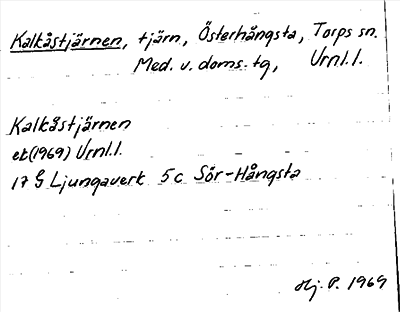 Kalkåstjärnen, tjärn, Österhångsta, Torps sn.
Med. v. doms. tg, Vrnl.l.
Kalkåstjärnen
ek(1969) Vrnl.l.
17 G Ljungaverk 5c Sör-Hångsta
Hj. P. 1969